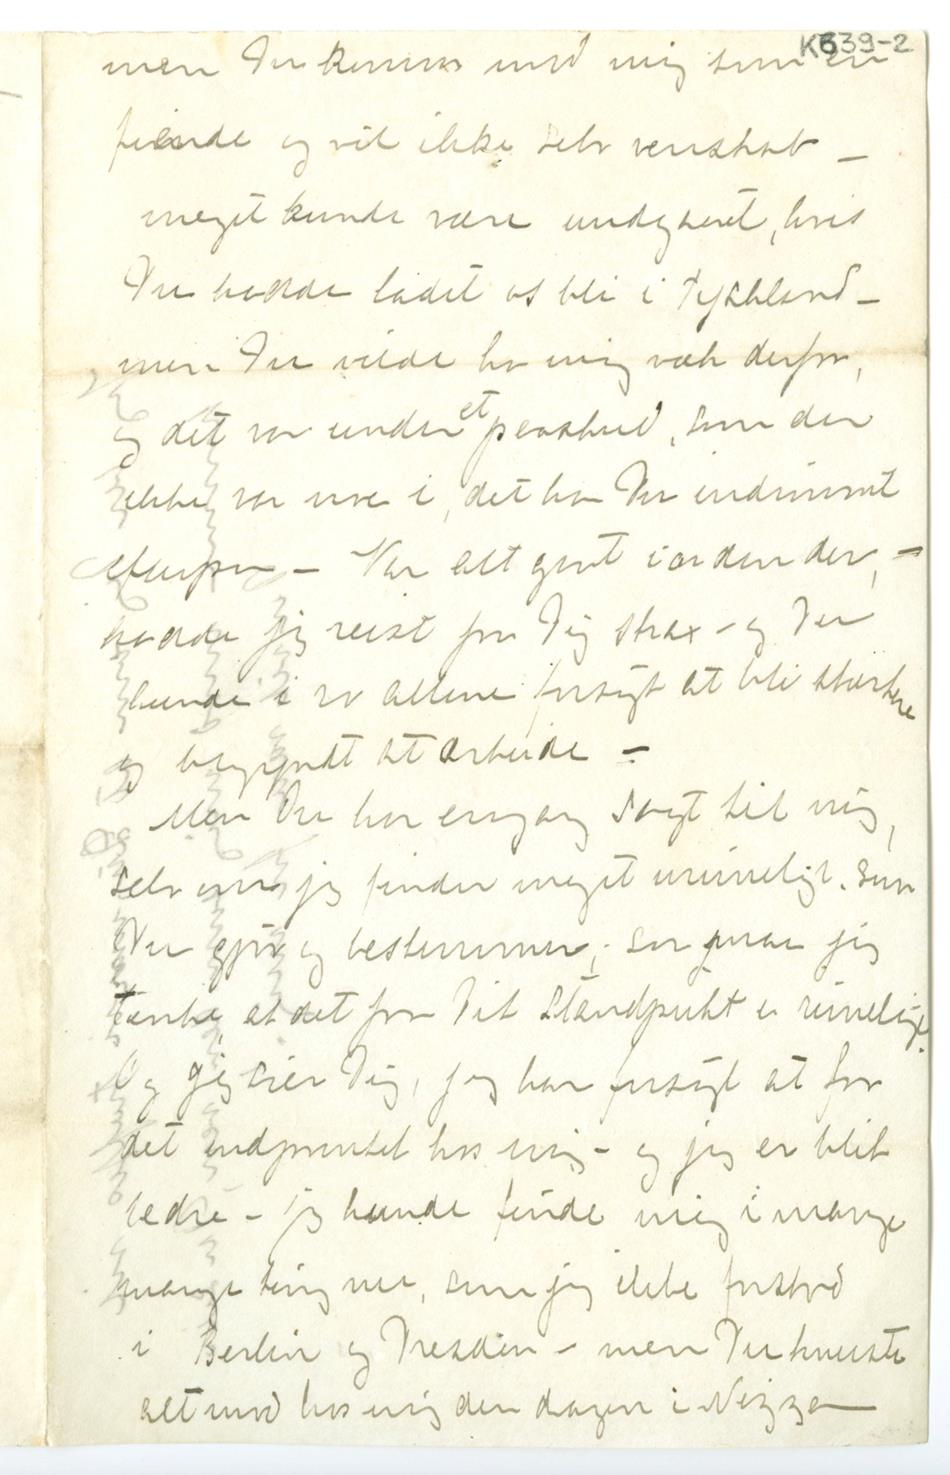 K639-2
men Du kommer mod mig som en
fiende og vil ikke selv venskab –
meget kunde være undgaaet, hvis
Du hadde ladet os bli i Tyskland –
men Du vilde ha mig væk derfra,
og det var under et paaskud, som der
ikke var noe i, det har Du indrømmet
efterpaa – Var alt gaat iorden der, –
hadde jeg reist fra Dig strax – og Du
kunde i ro allene forsøgt at bli stærkere
og begyndt at arbeide –
Men Du har engang sagt til mig,
selv om jeg finder meget urimeligt. som
Du gjør og bestemmer, saa maa jeg
tænke at det fra Dit Standpukt er rimeligt.
Og jeg sier Dig, jeg har forsøgt at faa
det indprentet hos mig – og jeg er blit
bedre – jeg kunde finde mig i mange
mange ting nu, som jeg ikke forstod
i Berlin og Dresden – men Du knuste
alt mod hos mig den dagen i Nizza